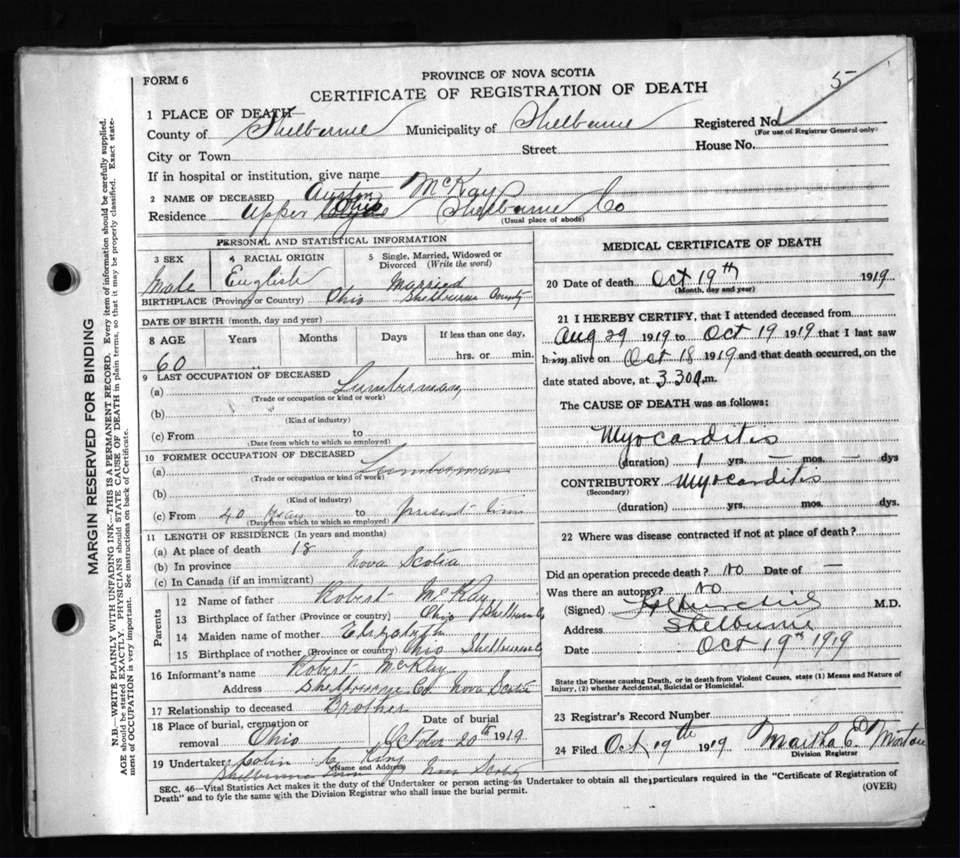 5
FORM 6
PROVINCE OF NOVA SCOTIA
CERTIFICATE OF REGISTRATION OF DEATH
1 PLACE OF DEATH
County of Shelburne Municipality of Shelburne Registered No. 1
(For use of Registrar General only)
City or Town Street House No.
If in hospital or institution, give name
2 NAME OF DECEASED Austin McKay
Residence Upper Ohio Shelburne Co
(Usual place of abode)
PERSONAL AND STATISTICAL INFORMATION
3 SEX Male
4 RACIAL ORIGIN English
5 Single, Married, Widowed or Divorced (Write the word) Married
BIRTHPLACE (Province or Country) Ohio Shelburne County
DATE OF BIRTH (month, day and year)
8 AGE Years Months Days If less than one day,
60 hrs. or min.
9 LAST OCCUPATION OF DECEASED
(a) Lumberman
(Trade or occupation or kind of work)
(b)
(Kind of industry)
(c) From to
(Date from which to which so employed)
10 FORMER OCCUPATION OF DECEASED
(a) Lumberman
(Trade or occupation or kind of work)
(b)
(Kind of industry)
(c) From 40 years to Present time
(Date from which to which so employed)
11 LENGTH OF RESIDENCE (In years and months)
(a) At place of death 18
(b) In province Nova Scotia
(c) In Canada (if an immigrant)
Parents
12 Name of father Robert McKay
13 Birthplace of father (Province or country) Ohio Shelburne Co
14 Maiden name of mother Elizabeth
15 Birthplace of mother (Province or country) Ohio Shelburne Co
16 Informant's name Robert McKay
Address Shelburne Co Nova Scotia
17 Relationship to deceased Brother
18 Place of burial, cremation or Date of burial
removal Ohio October 20th 1919
19 Undertaker Colin C. King
(Name and Address)
Shelburne Nova Scotia
MEDICAL CERTIFICATE OF DEATH
20 Date of death Oct 19th 1919
(Month, day and year)
21 I HEREBY CERTIFY, that I attended deceased from
Aug 29 1919 to Oct 19 1919 that I last saw
him alive on Oct 18 1919 and that death occurred, on the
date stated above, at 3 30 a.m.
The CAUSE OF DEATH was as follows:
Myocarditis
(duration) 1 yrs. — mos. — dys
CONTRIBUTORY Myocarditis
(Secondary)
(duration) yrs. mos. dys.
22 Where was disease contracted if not at place of death?
Did an operation precede death? No Date of —
Was there an autopsy? No
(Signed) M.D.
Address Shelburne
Date Oct 19th 1919
State the Disease causing Death, or in death from Violent Causes, state (1) Means and Nature of
Injury, (2) whether Accidental, Suicidal or Homicidal.
23 Registrar's Record Number
24 Filed Oct 19th 1919 Martha E D Morton
Division Registrar
SEC. 46—Vital Statistics Act makes it the duty of the Undertaker or person acting as Undertaker to obtain all the particulars required in the "Certificate of Registration of
Death" and to fyle the same with the Division Registrar who shall issue the burial permit.
(OVER)
MARGIN RESERVED FOR BINDING
N.B.—WRITE PLAINLY WITH UNFADING INK—THIS IS A PERMANENT RECORD. Every item of information should be carefully supplied.
AGE should be stated EXACTLY. PHYSICIANS should STATE CAUSE OF DEATH in plain terms, so that it may be properly classified. Exact statement of OCCUPATION is very important. See instructions on back of Certificate.